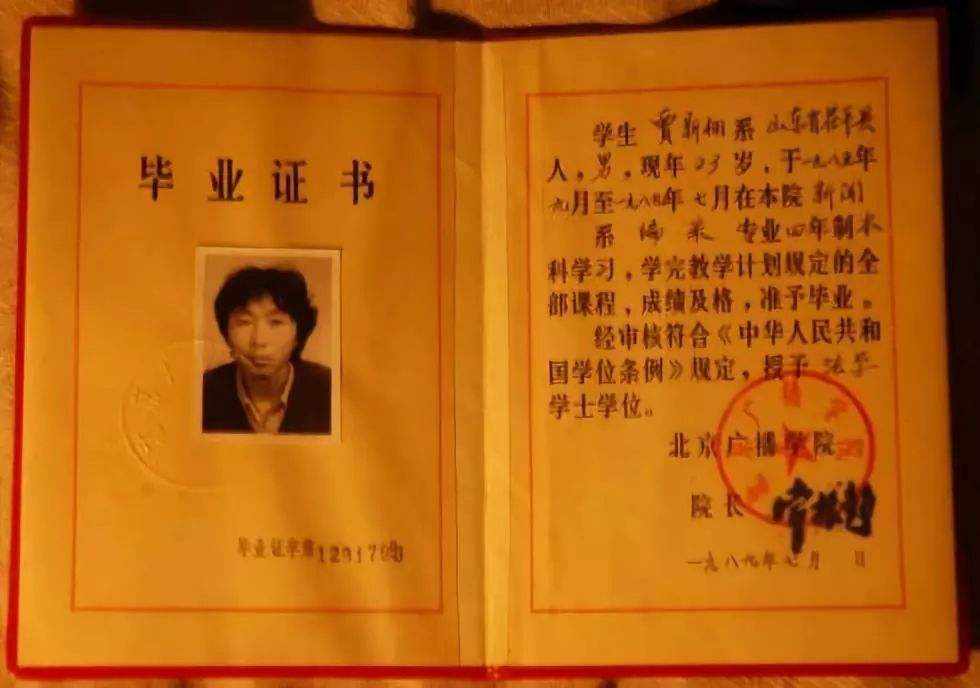 毕业证书
毕业证字第1201700号
学生 贾新栅 系 山东省茌平县
人，男，现年 23 岁，于一九八五年
九月至一九八九年 七月在本院 新闻
系 编采 专业四年制本
科学习，学完教学计划规定的全
部课程，成绩及格，准予毕业。
经审核符合《中华人民共和
国学位条例》规定，授予 法学
学士学位。
北京广播学院
院长
一九八九年七月 日